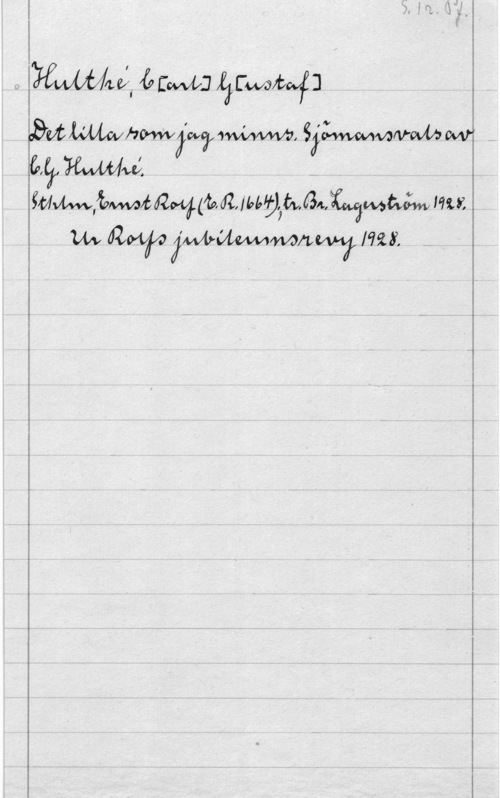 S. 12. 07.
Hulthé, C[arl] G[ustaf]
Det lilla som jag minns. Sjömansvals av
C.G. Hulthé.
Sthlm, Ernst Rolf (E.R. 1664), tr. Br. Lagerström 1928.
Ur Rolfs jubileumsrevy 1928.